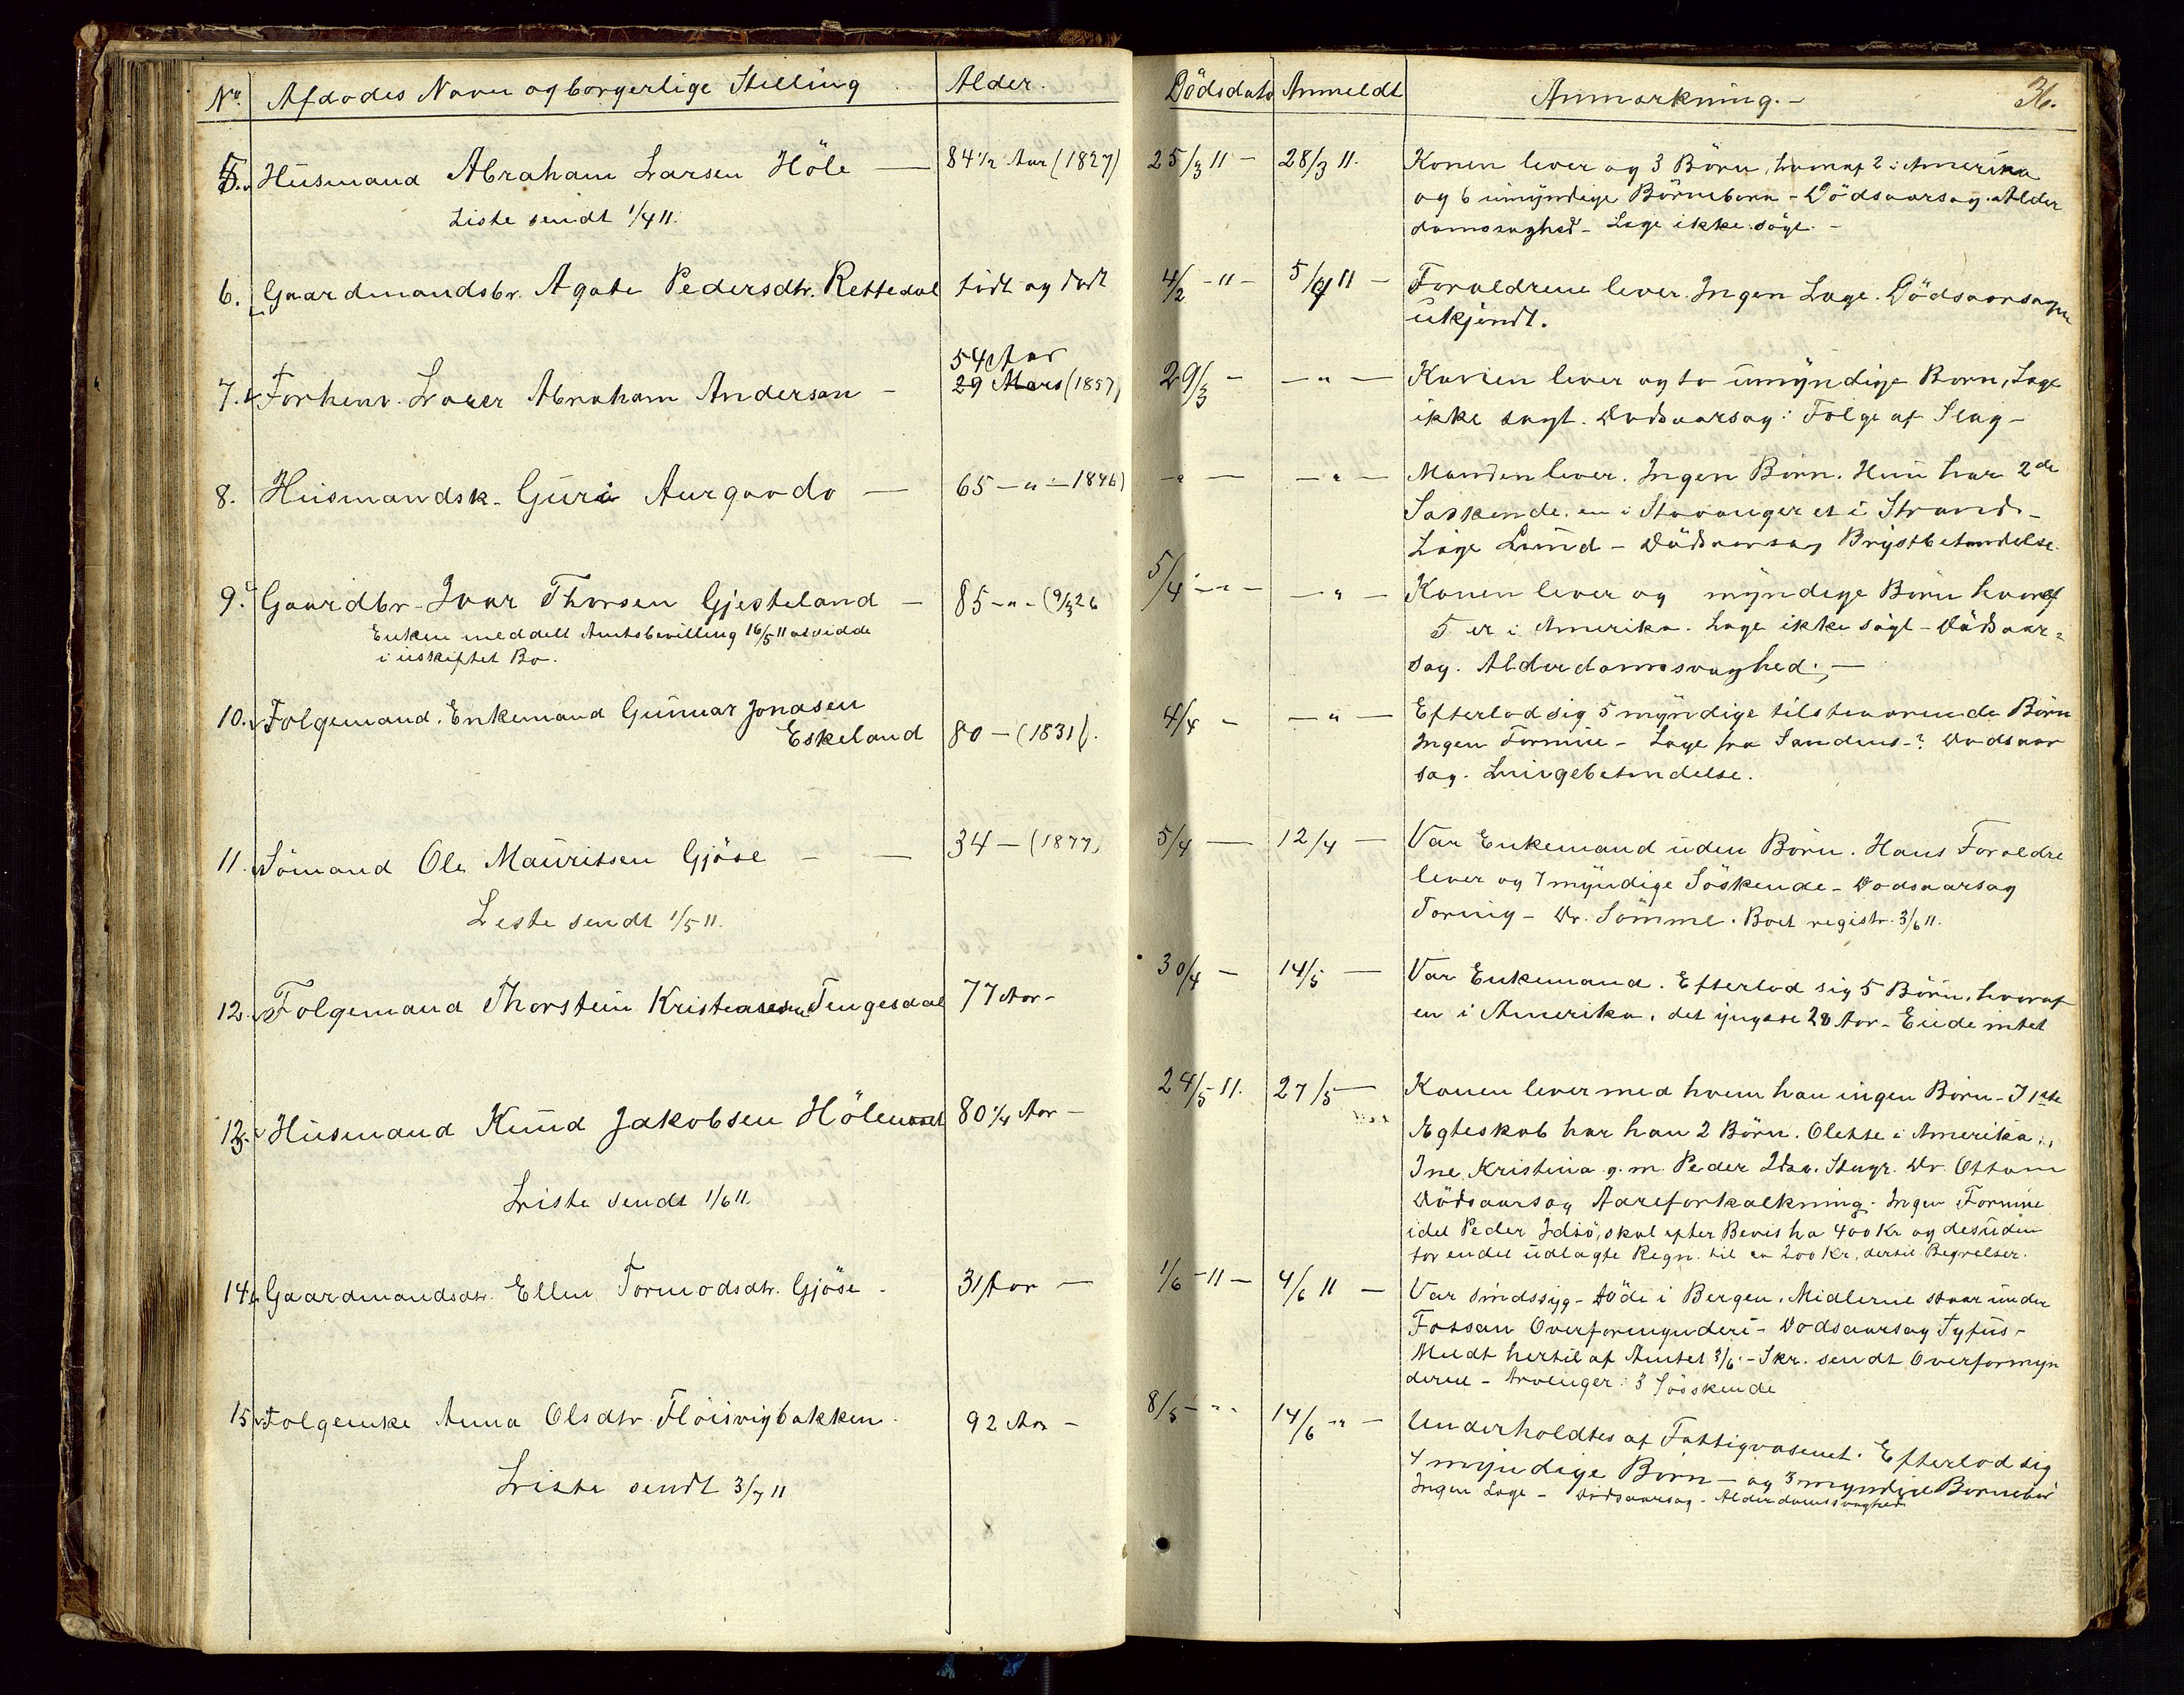 No. Afdødes Navn og borgerlige Stilling Alder. Dödsdato Anmeldt Anmærkning. - 36.
5. Husmand Abraham Larsen Höle — 84 1/2 Aar (1827) 25/3 11 - 28/3 11. Konen lever og 3 Börn, hvoraf 2 i Amerika
og 6 umyndige Börnebørn - Dödsaarsag. Alder
Liste sendt 1/4 11.
domssvaghed - Læge ikke sögt. -
6. Gaardmandsbr. Agate Pedersdtr. Rettedal födt og død 4/2 - 11 - 5/4 11 - Forældrene lever. Ingen Læge. Dödsaarsagen
ukjendt.
54 Aar
7. Forhenv. Lærer Abraham Anderson - 29 Mars (1857) 29/3 - — " — Konen lever og to umyndige Børn, Læge
ikke søgt. Dødsaarsag: Følge af Slag -
8. Husmandsk. Guri Aurgaado — 65 — " — 1846) — " — — " — Manden lever. Ingen Børn. Hun har 2de
Søskende, en i Stavanger et i Strand -
Læge Lund - Dödsaarsag Brystbetændelse.
9. Gaardbr. Ivar Thorsen Gjesteland — 85 - " - (9/3 26 5/4 - " - — " — Konen lever og myndige Börn hvoraf
Enken meddelt Amtsbevilling 16/5 11 at sidde
5 er i Amerika. Læge ikke sögt - Dödsaar=
i uskiftet Bo.
sag. Alderdomssvaghed. —
10. Folgemand. Enkemand Gunnar Jonasen
Eskeland 80 — (1831). 4/4 - — " — Efterlod sig 5 myndige tilstedværende Børn
Ingen Formue - Læge fra Sandnes - ? Dødsaar
sag. Lungebetændelse.
11. Sömand Ole Mauritsen Gjöse — — 34 — (1877) 5/4 — 12/4 — Var Enkemand uden Börn. Hans Forældre
lever og 7 myndige Söskende - Dødsaarsag
Liste sendt 1/5 11.
Tæring - Dr. Sömme. Boet registr. 3/6 11.
12. Folgemand Thorstein Kristensen Tengesdal 77 Aar - 30/4 — 14/5 — Var Enkemand. Efterlod sig 5 Börn, hvoraf
en i Amerika, det yngste 28 Aar - Eiede intet
13. Husmand Knud Jakobsen Hölen 80 1/4 Aar - 24/5 - 11. 27/5 — Konen lever med hvem han ingen Börn - I 1ste
Ægteskab har han 2 Börn. Olette i Amerika,
Ine Kristina g. m. Peder Idsø. Stvgr. Dr.
Liste sendt 1/6 11.
Dödsaarsag Aareforkalkning - Ingen Formue
idet Peder Idsö, skal efter Bevis ha 400 Kr og desuden
for endel udlagte Regn. til ca 200 Kr, dertil Begravelser.
14. Gaardmandsdtr. Ellen Tormodsdtr. Gjöse - 31 Aar — 1/6 - 11 - 4/6 11 — Var sindssyg - döde i Bergen. Midlerne staar under
Fossan Overformynderi - Dødsaarsag Tyfus -
Meldt hertil af Amtet 3/6 - Skr. sendt Overformyn
deriet - Arvinger: 3 Söskende
15. Folgeenke Anna Olsdtr. Flöisvigbakken. 92 Aar - 8/5 - " - 14/6 - " - Underholdtes af Fattigvæsenet. Efterlod sig
4 myndige Börn — og 3 myndige Börnebör
Liste sendt 3/7 11
Ingen Læge - Dødsaarsag - Alderdomssvaghed